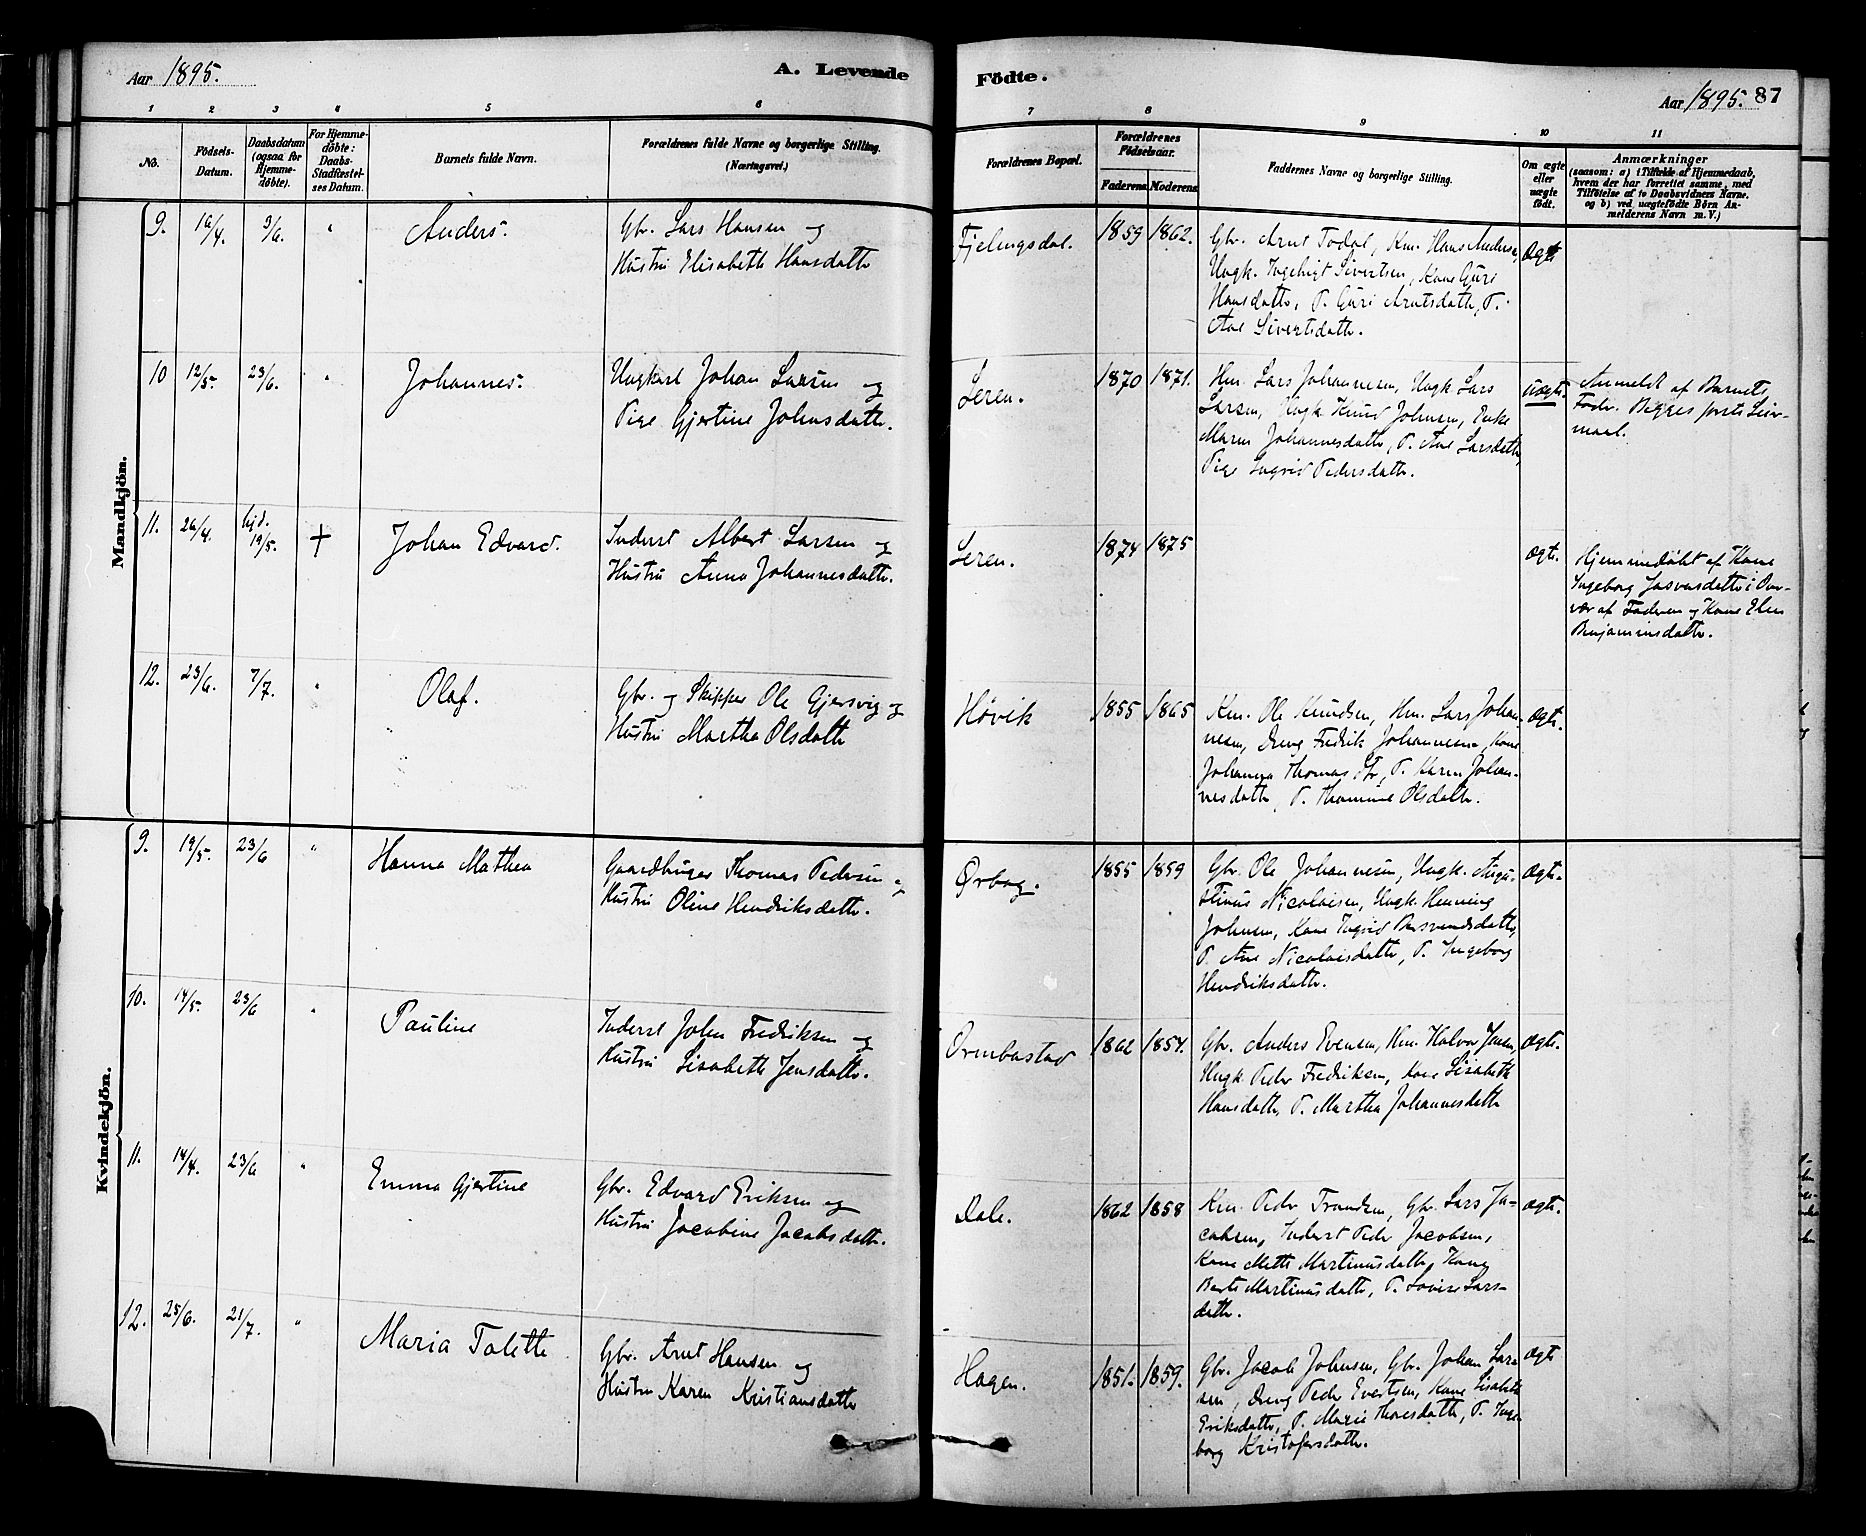 Aar 1895.
A. Levende
Födte.
Aar 1895. 87
1 2 3 4 5 6 7 8 9 10 11
No.
Födsels-
Datum.
Daabsdatum
(ogsaa for
Hjemme-
döbte).
For Hjemme-
döbte:
Daabs-
Stadfæstel-
ses Datum.
Barnets fulde Navn.
Forældrenes fulde Navne og borgerlige Stilling.
(Næringsvei.)
Forældrenes Bopæl.
Forældrenes
Födselsaar.
Faderens. Moderens.
Faddernes Navne og borgerlige Stilling.
Om ægte
eller
uægte
födt.
Anmærkninger
(saasom: a) i Tilfælde af Hjemmedaab,
hvem der har forrettet samme, med
Tilföielse af to Daabsvidners Navne.
og b) ved uægtefödte Börn An-
melderens Navn m. V.)
Mandkjön.
9. 16/4. 3/6. " Anders.
Gbr. Lars Hansen og
Hustru Elisabeth Hansdatter
Fjelengsdal. 1859 1862.
Gbr. Arnt Todal, Km. Hans Andersen,
Ungk. Ingebrigt Sivertsen, Kone Guri
Hansdatter, P. Guri Arntsdatter, P.
Ane Sivertsdatter.
Ægte
10 12/5. 23/6. " Johannes.
Ungkarl Johan Larsen og
Pige Gjertine Johnsdatter.
Leren. 1870 1871.
Hm. Lars Johannesen, Ungk. Lars
Larsen, Ungk. Knud Johnsen, Enke
Maren Johannesdatter, P. Ane Larsdatter,
Pige Ingrid Pedersdatter.
uægte.
Anmeldt af Barnets
Fader. Begges første Leier-
maal.
11. 26/4. hjd. 19/5. + Johan Edvard.
Inderst Albert Larsen og
Hustru Anna Johannesdatter.
Leren. 1874 1875
Ægte.
Hjemmedøbt af Kone
Ingeborg Jasvasdatter i Over-
vær af Faderen og Kone Elen
Benjaminsdatter.
12. 23/6. 7/7. " Olaf.
Gbr. og Skipper Ole Gjersvig og
Hustru Martha Olsdatter
Høvik 1855 1865
Km. Ole Knudsen, Hm. Lars Johan-
nesen, Dreng Fredrik Johannesen, Kone
Johanna Thomasdtr, P. Karen Johan-
nesdatter, P. Thomine Olsdatter.
Ægte.
Kvindekjön.
9. 19/5. 23/6 " Hanna Mathea
Gaardbruger Thomas Pedersen og
Hustru Oline Hendriksdatter.
Ørbog. 1855 1859
Gbr. Ole Johannesen, Ungk. Augu-
stinus Nicolaisen, Ungk. Henning
Johnsen, Kone Ingrid Bersvendsdatter,
P. Ane Nicolaisdatter, P. Ingeborg
Hendriksdatter.
Ægte.
10. 14/5. 23/6 " Pauline
Inderst John Fredriksen og
Hustru Lisabeth Jensdatter.
Ormbostad 1862 1854.
Gbr. Anders Evensen, Km. Halvor Jensen,
Ungk. Peder Fredriksen, Kone Lisabeth
Hansdatter, P. Martha Johannesdatter
Ægte.
11. 14/4. 23/6 " Emma Gjertine
Gbr. Edvard Eriksen og
Hustru Jacobine Jacobsdatter.
Dale. 1862 1858
Km. Peder Frandsen, Gbr. Lars Ja-
cobsen, Inderst Peder Jacobsen,
Kone Mette Martinusdatter, Kone
Berte Martinusdatter, P. Lovise Lars-
datter.
Ægte.
12. 25/6. 21/7. " Maria Tolette
Gbr. Arnt Hansen og
Hustru Karen Kristiansdatter
Hagen. 1851. 1859.
Gbr. Jacob Johnsen, Gbr. Johan Lar-
sen, Dreng Peder Evertsen, Kone Lisabeth
Eriksdatter, P. Marie Thoresdatter, P. Inge-
borg Kristofersdatter.
Ægte